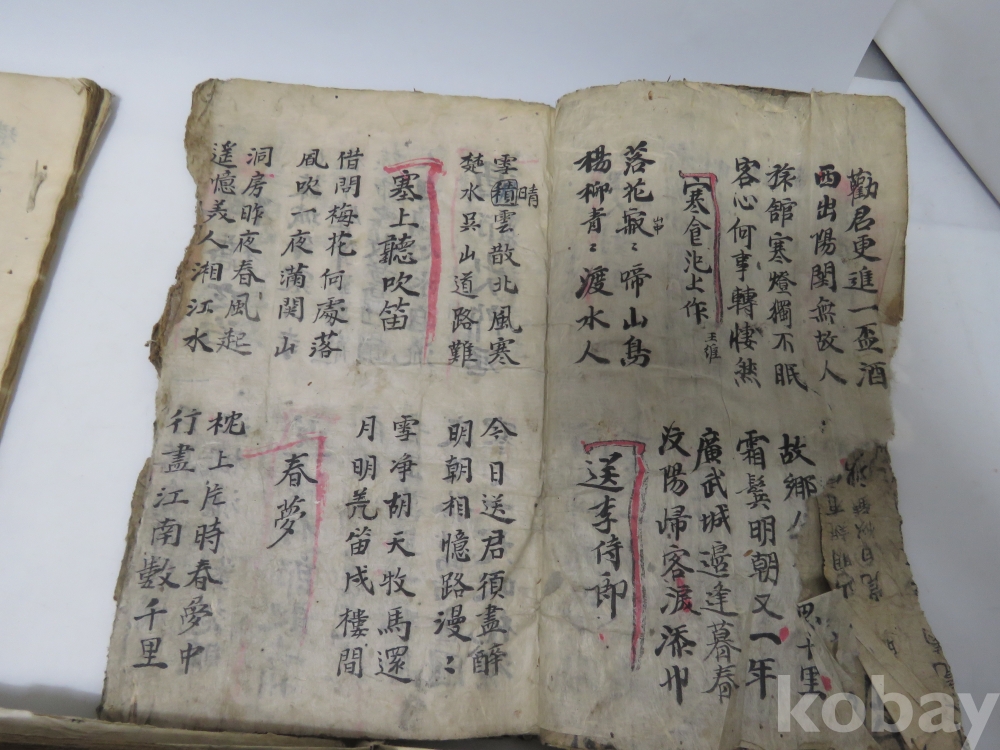 勸君更進一盃酒
西出陽関無故人
旅舘寒燈獨不眠
客心何事轉悽然
故鄉
千里
霜鬂明朝又一年
寒食氾上作 王維
廣武城邉逢暮春
汶陽歸客淚添巾
落花寂〻啼山鳥
楊柳青〻渡水人
送李侍郎
雪積晴雲散北風寒
楚水吳山道路難
今日送君須盡醉
明朝相憶路漫〻
塞上聽吹笛
雪净胡天牧馬還
月明羌笛戍樓間
借問梅花何處落
風吹一夜滿関山
春夢
洞房昨夜春風起
遥憶美人湘江水
枕上片時春夢中
行盡江南數千里
kobay